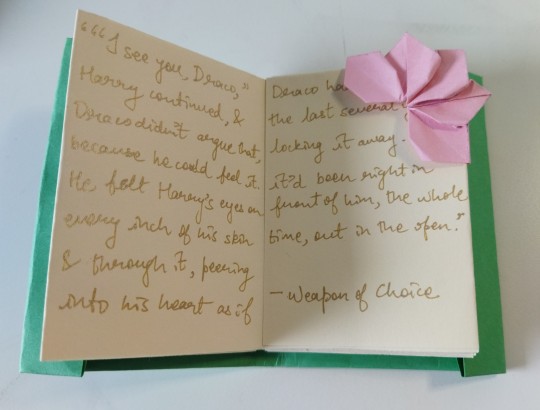 "“I see you, Draco,"
Harry continued, &
Draco didn't argue that,
because he could feel it.
He felt Harry's eyes on
every inch of his skin
& through it, peering
into his heart as if
Draco
the last several
locking it away.
it'd been right in
front of him, the whole
time, out in the open."
- Weapon of Choice